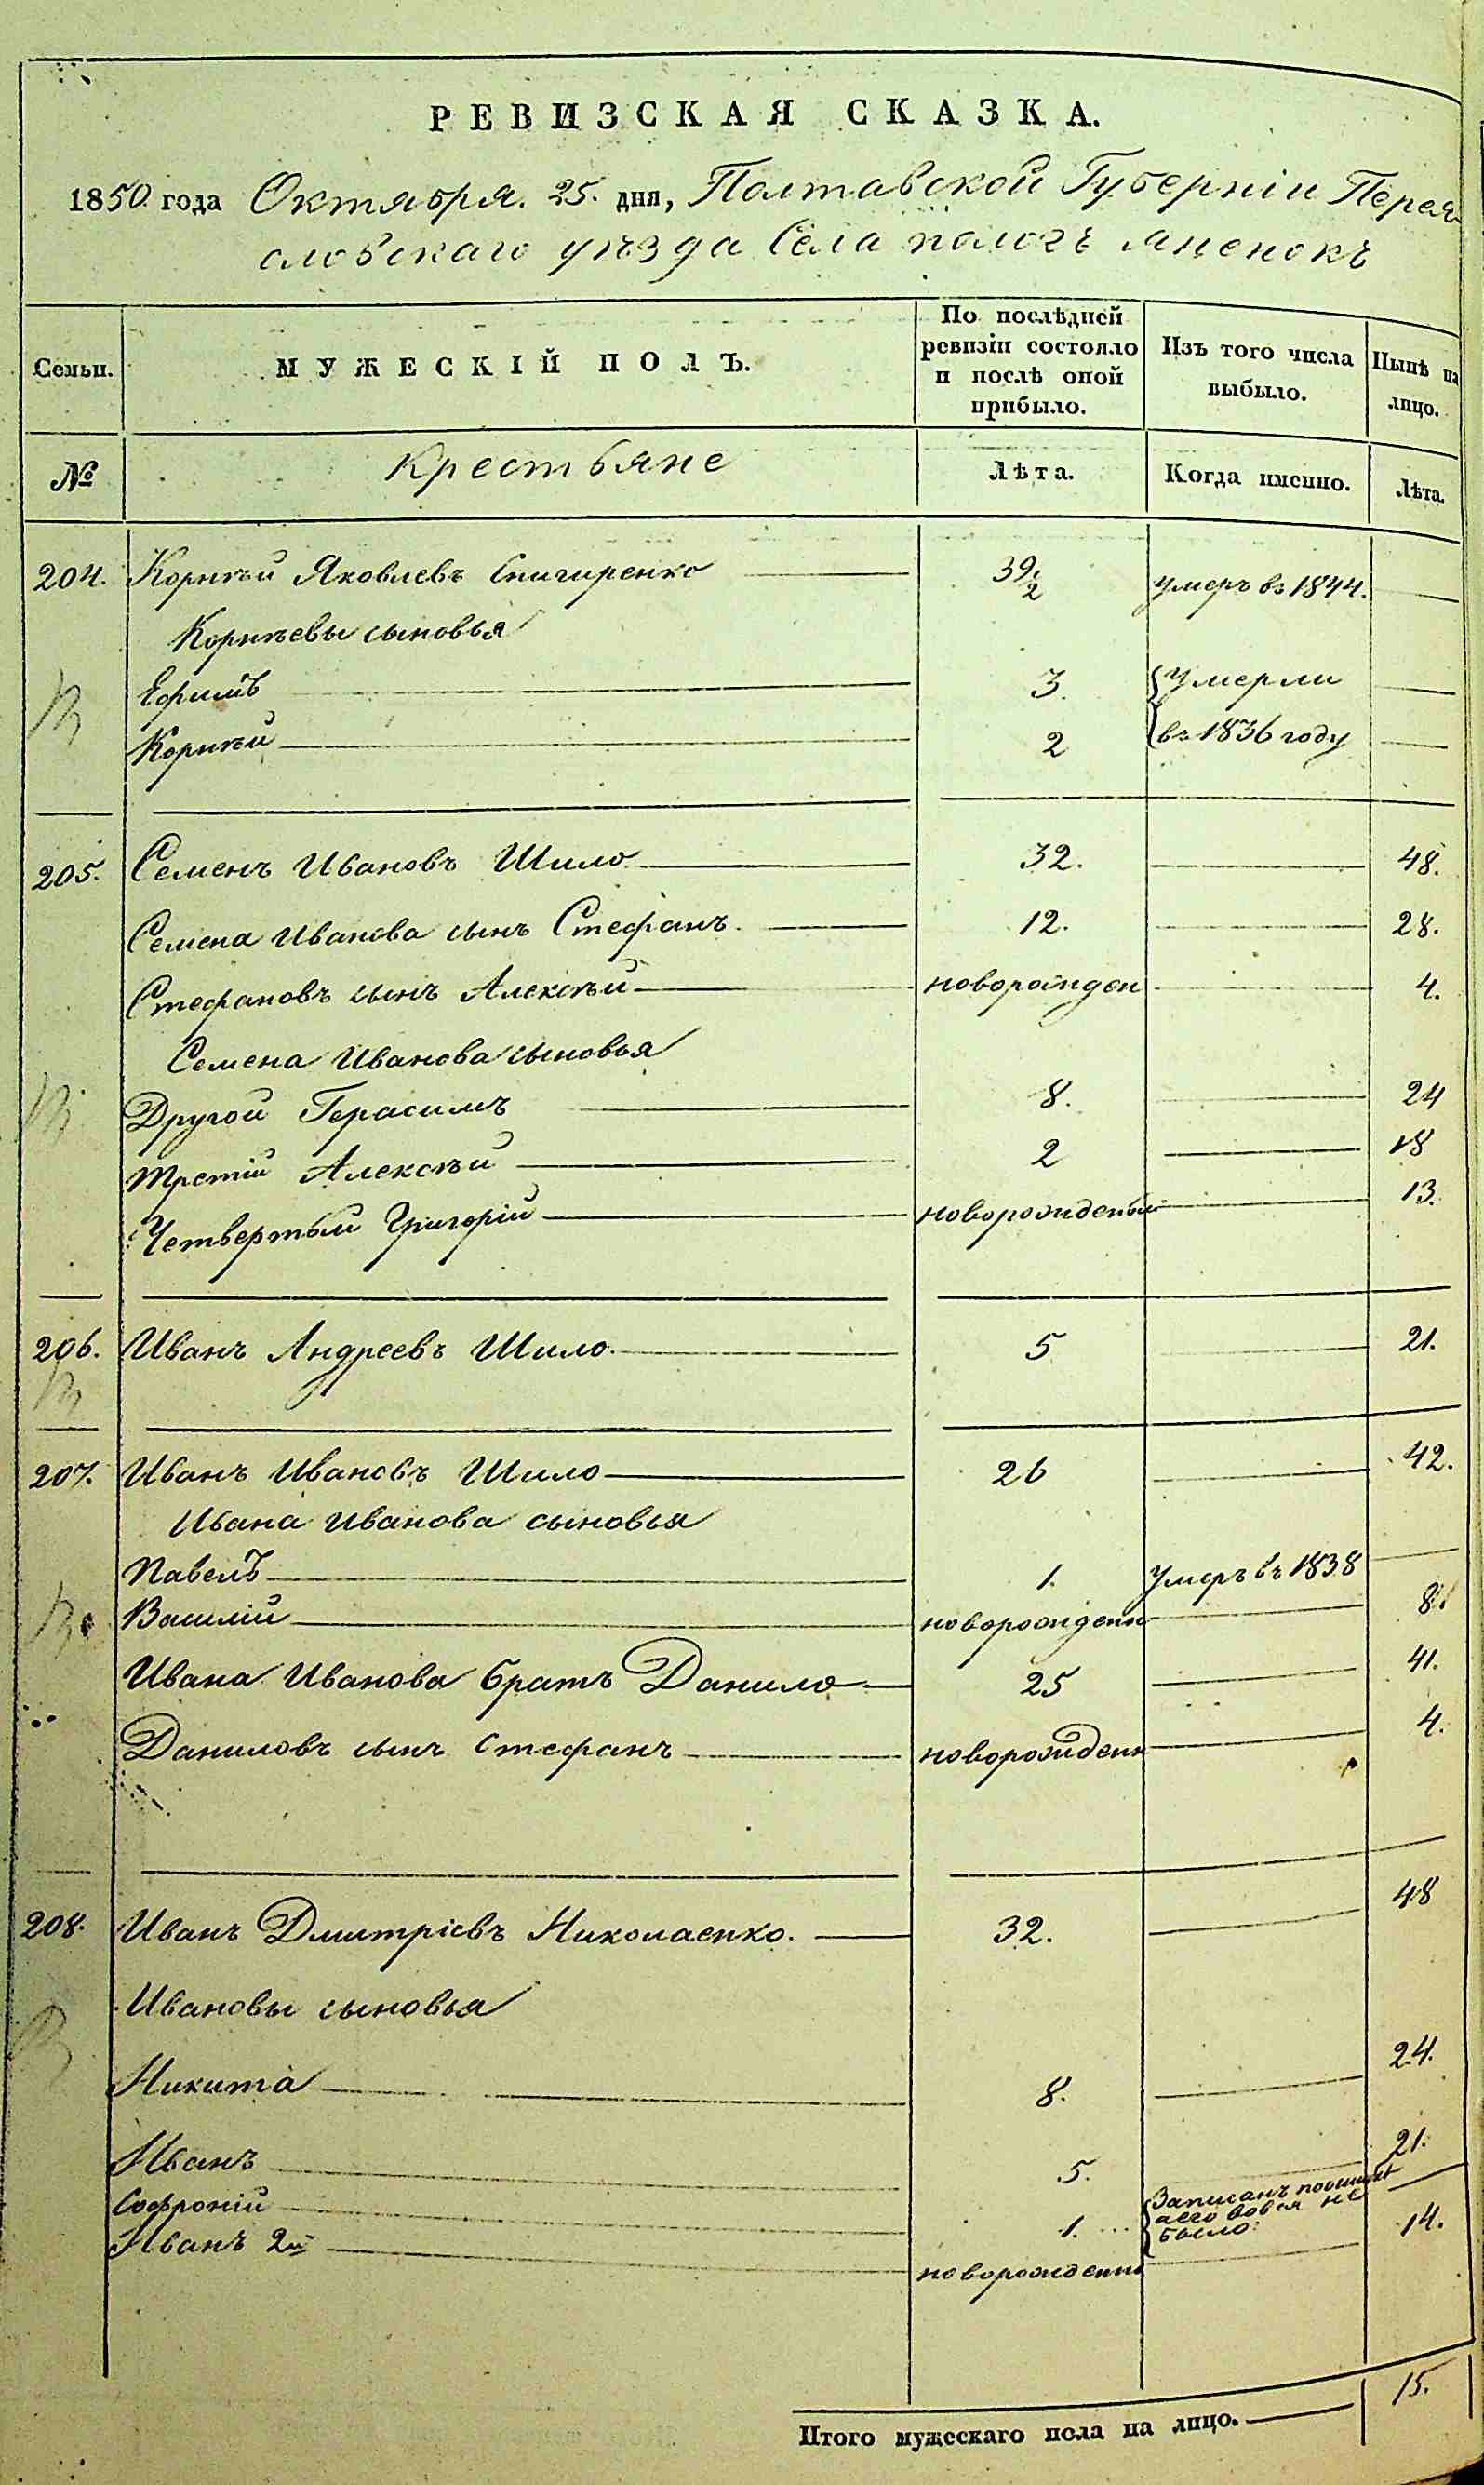 РЕВИЗСКАЯ СКАЗКА.
1850. года Октября. 25. дня, Полтавской Губерніи Перея
словскаго уѣзда Села пологъ яненокъ
Семьи. МУЖЕСКІЙ ПОЛЪ. По послѣдней ревизіи состояло и послѣ оной прибыло. Изъ того числа выбыло. Нынѣ на лицо.
№ Крестьяне Лѣта. Когда именно. Лѣта.
204. Корнѣй Яковлевъ Снигиренко 39 1/2 умеръ въ 1844.
Корнѣевы сыновья
Ефимъ 3. Умерли
Корнѣй 2 въ 1836 году
205. Семенъ Ивановъ Шило 32. 48.
Семена Иванова сынъ Стефанъ. 12. 28.
Стефановъ сынъ Алексѣй новорожден 4.
Семена Иванова сыновья
Другой Герасимъ 8. 24
третій Алексѣй 2 18
Четвертый Григорій новорожденый 13.
206. Иванъ Андреевъ Шило 5 21.
207. Иванъ Ивановъ Шило 26 42.
Ивана Иванова сыновья
Павелъ 1. Умеръ въ 1838
Василій новорожденн 8.
Ивана Иванова братъ Данило 25 41.
Даниловъ сынъ Стефанъ новорожденн 4.
208. Иванъ Дмитріевъ Николаенко. 32. 48
Ивановы сыновья
Никита 8. 24.
Иванъ 5. 21.
Софроній 1. Записанъ а его вовся не было
Иванъ 2й новорожденн 14.
Итого мужескаго пола на лицо. 15.